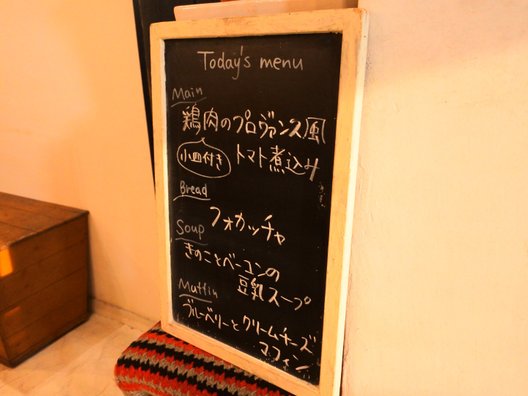 Today's menu
Main
鶏肉のプロヴァンス風
小皿付き
トマト煮込み
Bread
フォカッチャ
Soup
きのことベーコンの
豆乳スープ
Muffin
ブルーベリーとクリームチーズ
マフィン